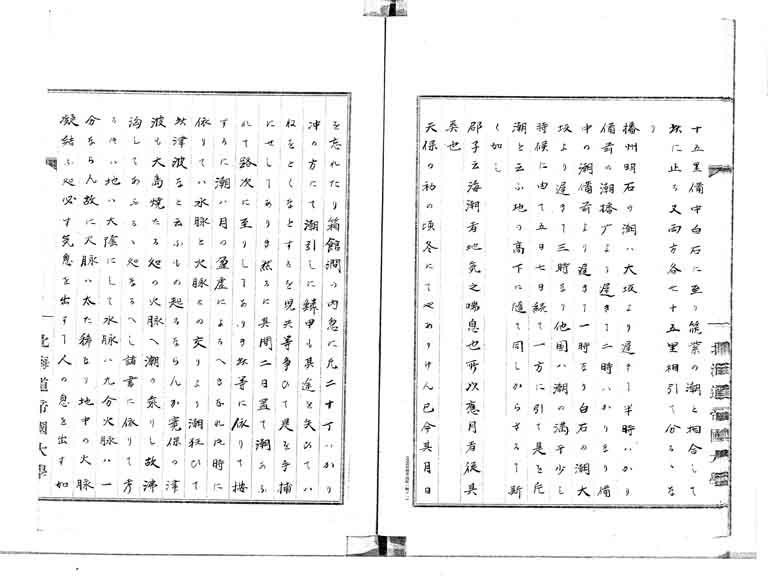 十五里備中白石に至り筑紫の潮と相合して
玆に止る又両方各七十五里相引て分るゝな
り
播州明石の潮ハ大坂より遅き事半時ハかり
備前の潮播广より遅きて二時ハかりまり備
中の潮備前より遅きて一時まり白石の潮大
坂より遅きて三時まり他国ハ潮の満干少し
時候に由て五日七日続て一方に引て是と片
潮と云ふ地の高下に随て同しからさるて斯
くの如し
郡子云海潮者地気之喘息也所以應月者従其
類也
天保の初の頃冬にてやありけん已今其月日
を忘れたり箱館澗の内忽に凡二十丁ハかり
冲の方にて潮引しに鱗甲も其途を失ひてい
収をとくなとするを児共等争ひて是を手捕
にせしてありき然るに其間二日置て潮あふ
れて路次に至りしてありき玆等に依りて按
するに潮ハ月の盈虚によるへきなれ氏時に
依りてハ水脉と火脉との交りより潮狂ひて
玆津波なと云ふもの起るならんか寛保の津
波も大島焼たる処の火脉へ潮の乘りし故沸
沟してあふるゝ処なるへし諸書に依りて考
るにハ地ハ大陰にして水脉ハ九分火脉ハ一
分ならん故に火脉ハ太た稀なり地中の火脉
凝結ふ処必す気息を出すて人の息を出す如
北海道帝國大學